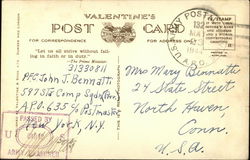 VALENTINE'S
POST CARD
FOR CORRESPONDENCE
FOR ADDRESS ONLY
"Let us all strive without fail-
ing in faith or in duty."
The Prime Minister
31330811
PFC John J. Bennatti
597 Sta Comp Squadron
A.P.O. 635 c/o Postmaster
New York, N.Y.
U.S. ARMY POSTAL
A.P.O.
PASSED BY
ARMY EXAMINER
Mrs Mary Bennatti
24 State Street
North Haven
Conn.
U.S.A.